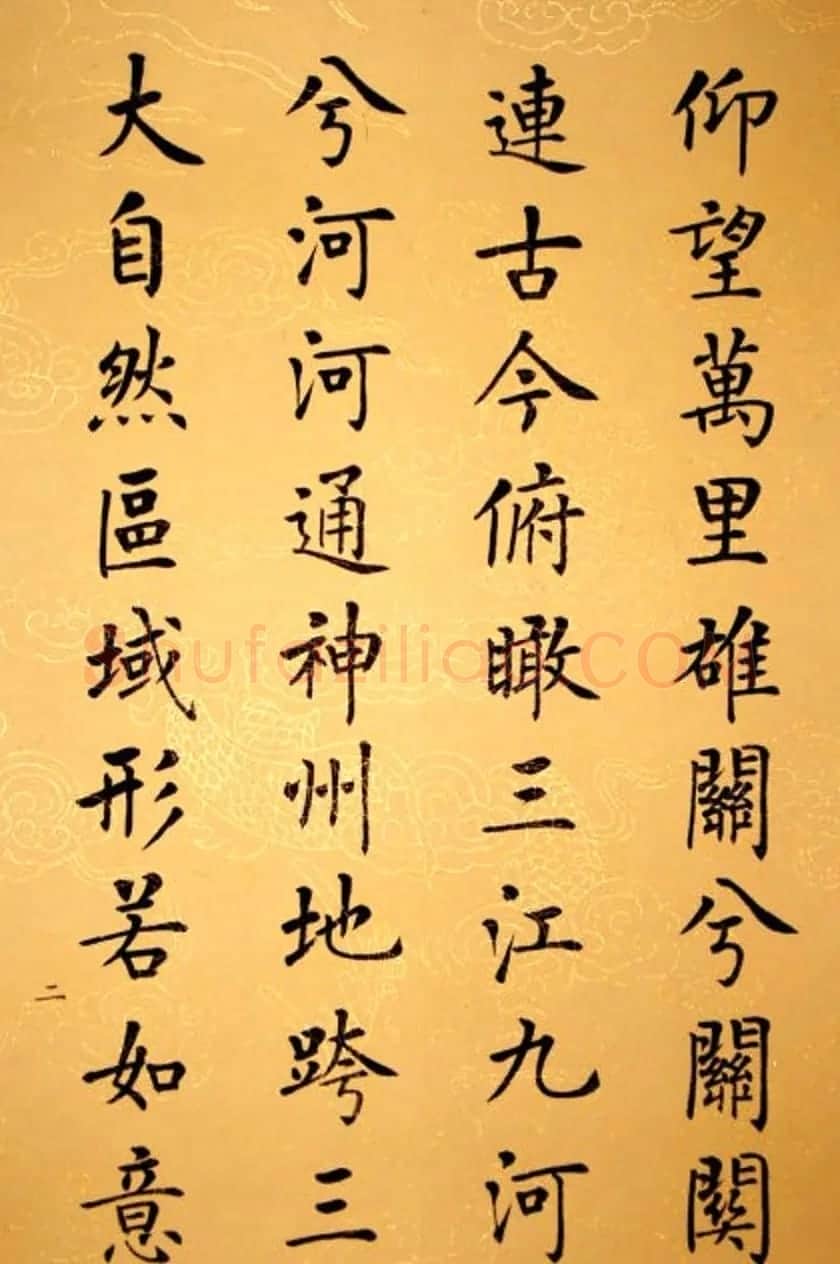 仰望萬里雄關兮關関
連古今俯瞰三江九河
兮河河通神州地跨三
大自然區域形若如意
二
Shufaziliao.COM